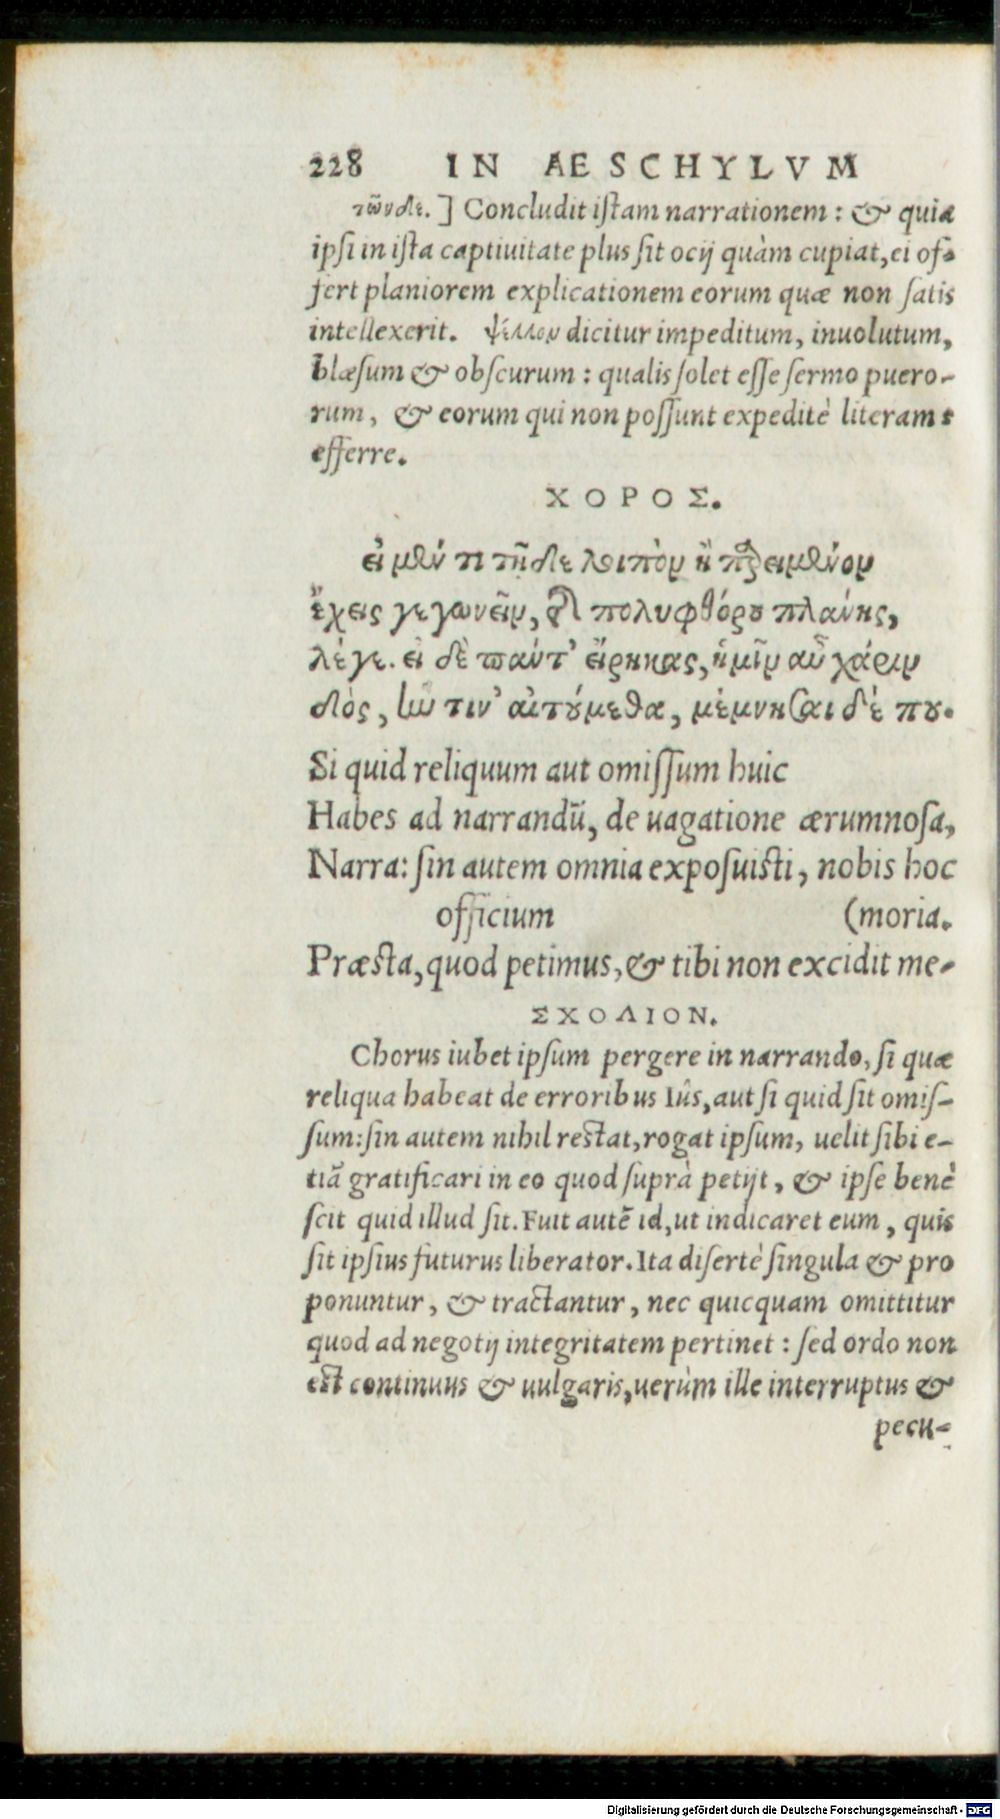 228 IN AESCHYLVM
τῶνδε.] Concludit istam narrationem: & quia
ipsi in ista captiuitate plus sit ocij quàm cupiat, ei of-
fert planiorem explicationem eorum quæ non satis
intellexerit. ψέλλον dicitur impeditum, inuolutum,
blæsum & obscurum: qualis solet esse sermo puero-
rum, & eorum qui non possunt expeditè literam ε
efferre.
ΧΟΡΟΣ.
εἰ μέν τι τῇδε λοιπὸν ἢ παρειμένον
ἔχεις γεγωνεῖν, τῆς πολυφθόρου πλάνης,
λέγε. εἰ δὲ πάντ' εἴρηκας, ἡμῖν αὖ χάριν
δὸς, ἥν τιν' αἰτούμεθα, μέμνησαι δέ που.
Si quid reliquum aut omissum huic
Habes ad narrandū, de uagatione ærumnosa,
Narra: sin autem omnia exposuisti, nobis hoc
officium (moria.
Præsta, quod petimus, & tibi non excidit me-
ΣΧΟΛΙΟΝ.
Chorus iubet ipsum pergere in narrando, si quæ
reliqua habeat de erroribus Iûs, aut si quid sit omis-
sum: sin autem nihil restat, rogat ipsum, uelit sibi e-
tiā gratificari in eo quod suprà petijt, & ipse benè
scit quid illud sit. Fuit autē id, ut indicaret eum, quis
sit ipsius futurus liberator. Ita disertè singula & pro
ponuntur, & tractantur, nec quicquam omittitur
quod ad negotij integritatem pertinet: sed ordo non
est continuus & uulgaris, uerùm ille interruptus &
pecu-
Digitalisierung gefördert durch die Deutsche Forschungsgemeinschaft - DFG